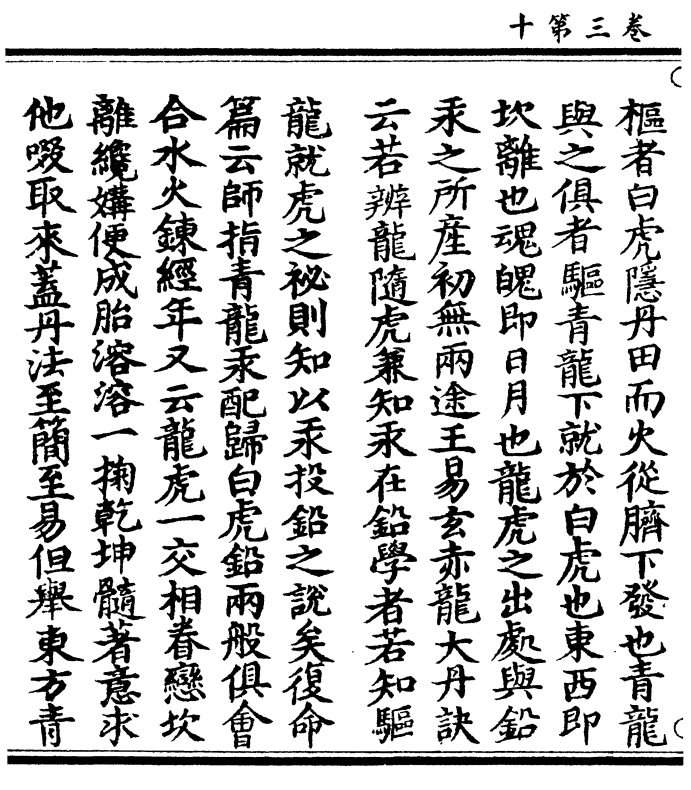 卷三第十
樞者白虎隱丹田而火從臍下發也青龍
與之俱者驅青龍下就於白虎也東西即
坎離也魂魄即日月也龍虎之出處與鉛
汞之所産初無兩途王易玄赤龍大丹訣
云若辨龍隨虎兼知汞在鉛學者若知驅
龍就虎之祕則知以汞投鉛之說矣復命
篇云師指青龍汞配歸白虎鉛兩般俱會
合水火鍊經年又云龍虎一交相眷戀坎
離纔媾便成胎溶溶一掬乾坤髓著意求
他啜取來蓋丹法至簡至易但舉東方青